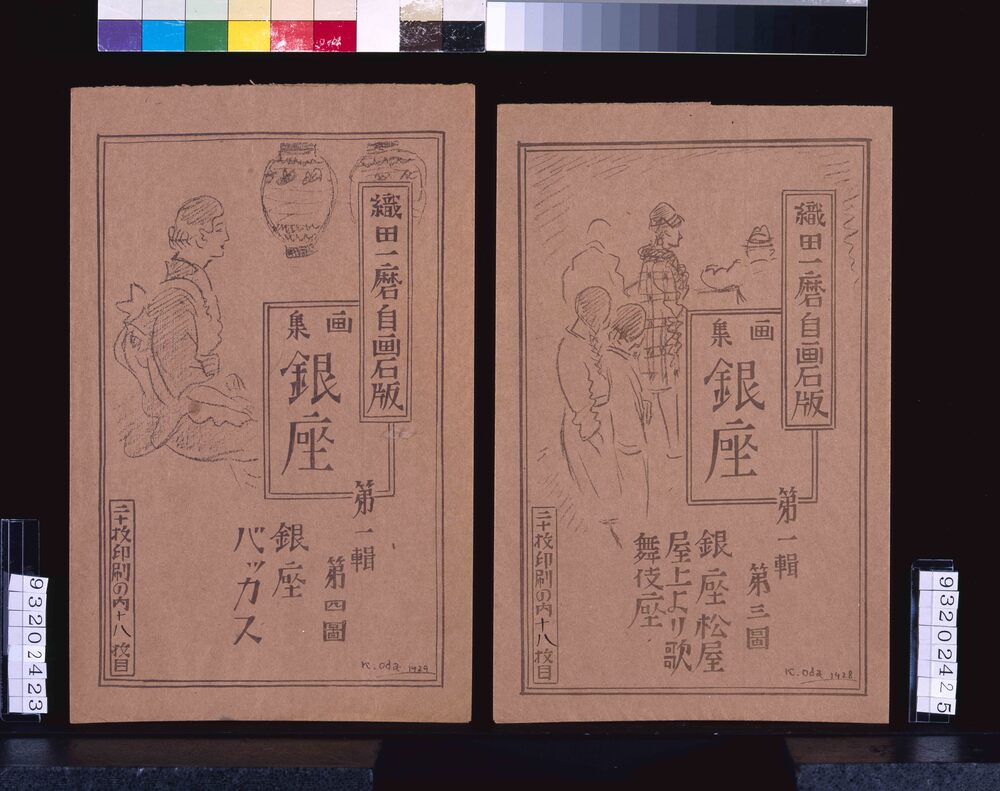 織田一磨自画石版
画集
銀座
第一輯
第四圖
銀座
バッカス
二十枚印刷の内十八枚目
K. oda 1929
織田一磨自画石版
画集
銀座
第一輯
第三圖
銀座松屋
屋上より歌
舞伎座
二十枚印刷の内十八枚目
K. oda 1928
93202423
93202425